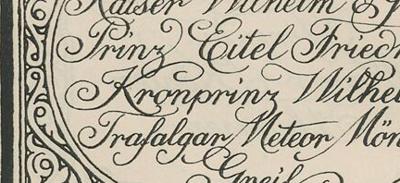 Kaiser Wilhelm
Prinz Eitel Fried
Kronprinz Wilhel
Trafalgar Meteor Mön
Greif